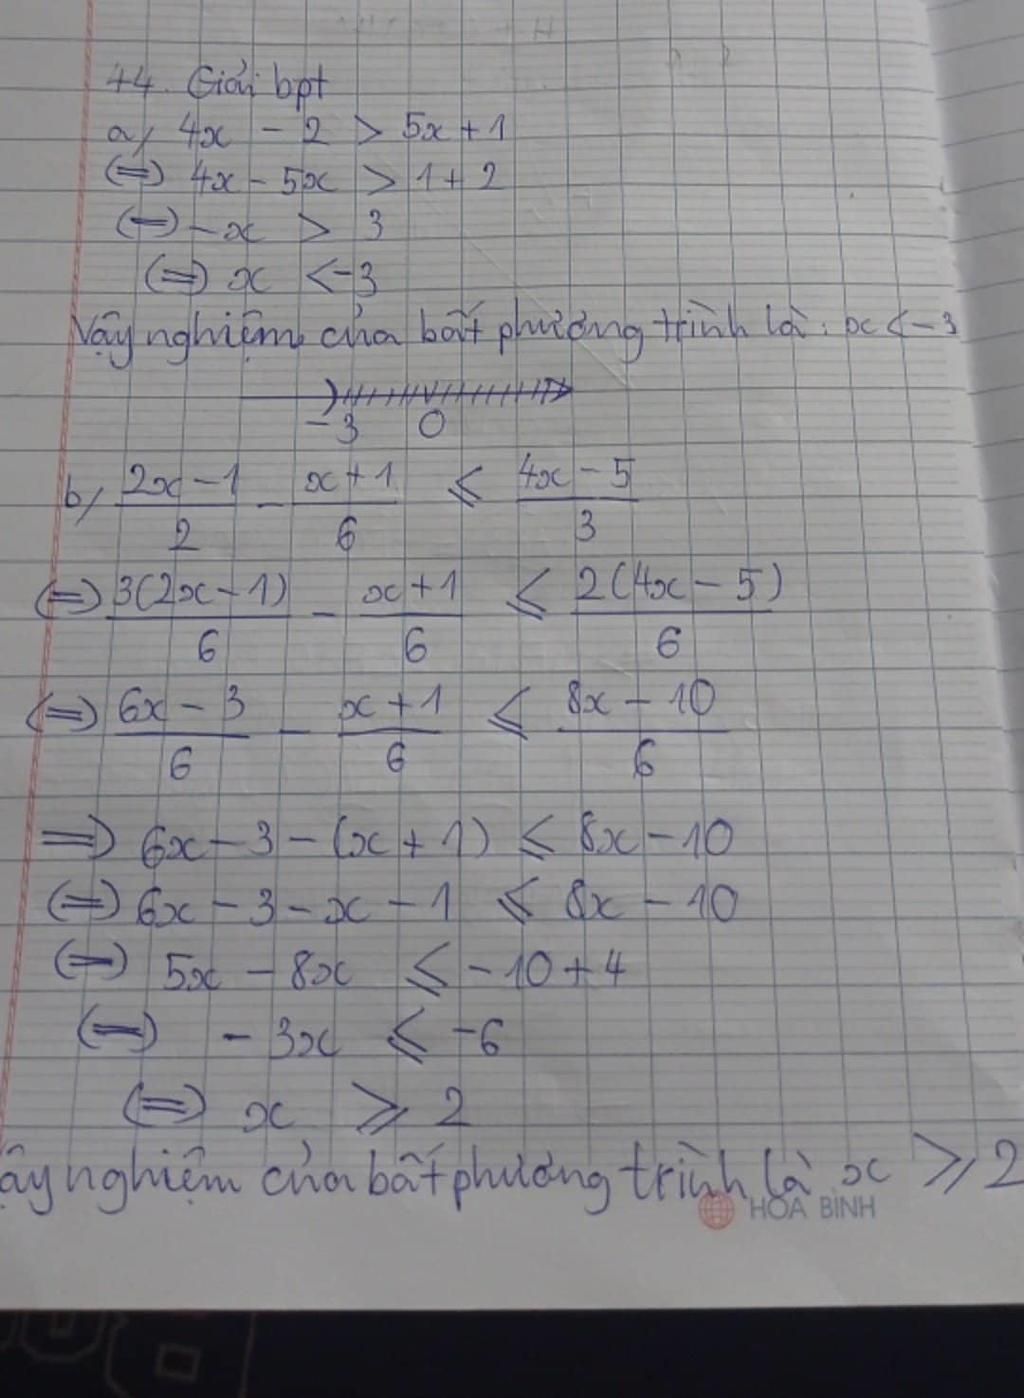 44. Giải bpt
a, 4x - 2 > 5x + 1
(=) 4x - 5x > 1 + 2
(=) -x > 3
(=) x < -3
Vậy nghiệm của bất phương trình là: x < -3
-3 0
b, (2x - 1)/2 - (x + 1)/6 ⩽ (4x - 5)/3
(=) 3(2x - 1)/6 - (x + 1)/6 ⩽ 2(4x - 5)/6
(=) (6x - 3)/6 - (x + 1)/6 ⩽ (8x - 10)/6
=) 6x - 3 - (x + 1) ⩽ 8x - 10
(=) 6x - 3 - x - 1 ⩽ 8x - 10
(=) 5x - 8x ⩽ -10 + 4
(=) - 3x ⩽ -6
(=) x ⩾ 2
ậy nghiệm của bất phương trình là x ⩾ 2
HÒA BÌNH